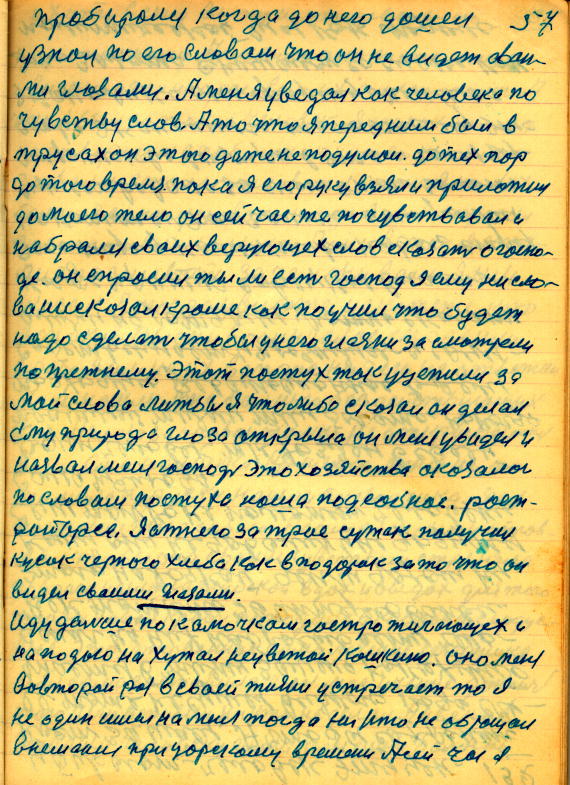 пробирали когда до него дошел 57
узнал по его словам что он не видет сваи-
ми глазами. А меня уведал как человека по
чувству слов. А то что я перед ним был в
трусах он этого даже не подумал. до тех пор
до того время. пока я его руку взял и приложил
до моего тело он сейчас же почувствовал и
набрался своих верующех слов сказать о госпо-
де. он спросил ты ли есть господ я ему ни сло-
ва ни сказал кроме как поучил что будет
надо сделать чтобы у него глазки засмотрели
попрежнему. Этот пастух так уцепился за
мои слова лишь бы я что либо сказал он делал
Ему природа глаза открыла он меня увидел и
назвал меня господ Это хозяйства оказалась
по словам пастуха наша подсобное.
Я от него за трое суток получил
кусок черного хлеба как в подарок за то что он
видел сваими глазами.
Иду дальше по камочкам гостро жигающех и
нападаю на хутал неуветай Кошкино. оно меня
вовторой раз в своей жизни устречает то я
не один шел на меня тогда ни кто не обращал
внемания при царскому времени А сей час я